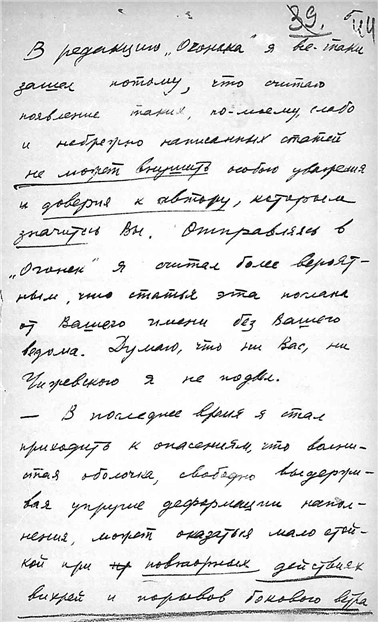 39.
В редакцию „Огонька" я все-таки
зашел потому, что считаю
появление таких, по-моему, слабо
и небрежно написанных статей
не может внушить особого уважения
и доверия к автору, которым
значитесь Вы. Отправляясь в
„Огонек" я считал более вероят-
ным, что статья эта послана
от Вашего имени без Вашего
ведома. Думаю, что ни Вас, ни
Чижевского я не подвел.
— В последнее время я стал
приходить к опасениям, что волни-
стая оболочка, свободно выдержи-
вая упругие деформации напол-
нения, может оказаться мало стой-
кой при повторных действиях
вихрей и порывов бокового ветра